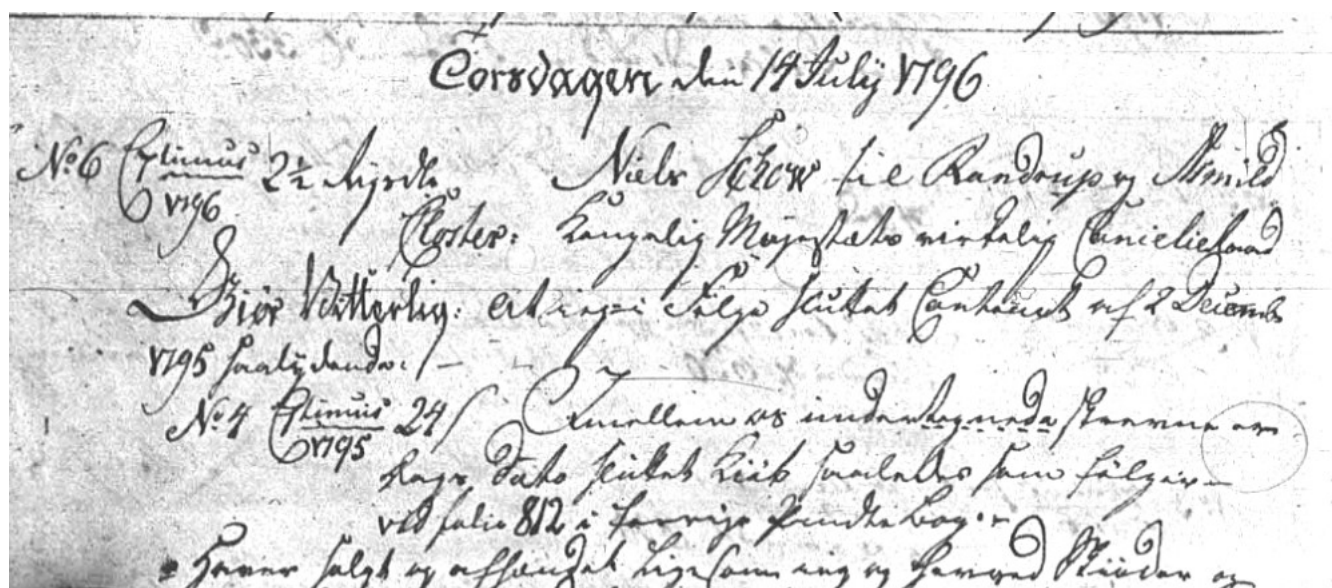 Torsdagen den 14 July 1796
No. 6 Optimus 1796 2½ Rigsdlr Niels Schow til Randrup og Asmild
Closter: Kongelig Mayestæts virkelig Cancelieraad
Giør Vitterlig: At ieg i Følge sluttet Contract af 2 Decemb
1795 saalydende:/
No. 4 1795 24 s Imellem os undertegnede er
Dags Dato sluttet Kiøb saaledes som følger
vid folio 812 i forrige Pandte bog
Haver solgt og afhændet ligesom ieg og herved Skiøder og